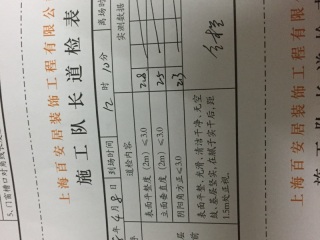 5、门窗槽口对角线
上海百安居装饰工程有限公
施工队长道检表
年4月8日 到场时间 12时10分 离场时
道检内容 实测数据
表面平整度(2m)≤3.0 2.8
立面垂直度(2m)≤3.0 2.5
阴阳角方正≤3.0 2.3
表面平整、光滑、清洁干净、无空
鼓,基层坚实,在腻子实干后,距
1.5m处正视。
合格
上海百安居装饰工程有